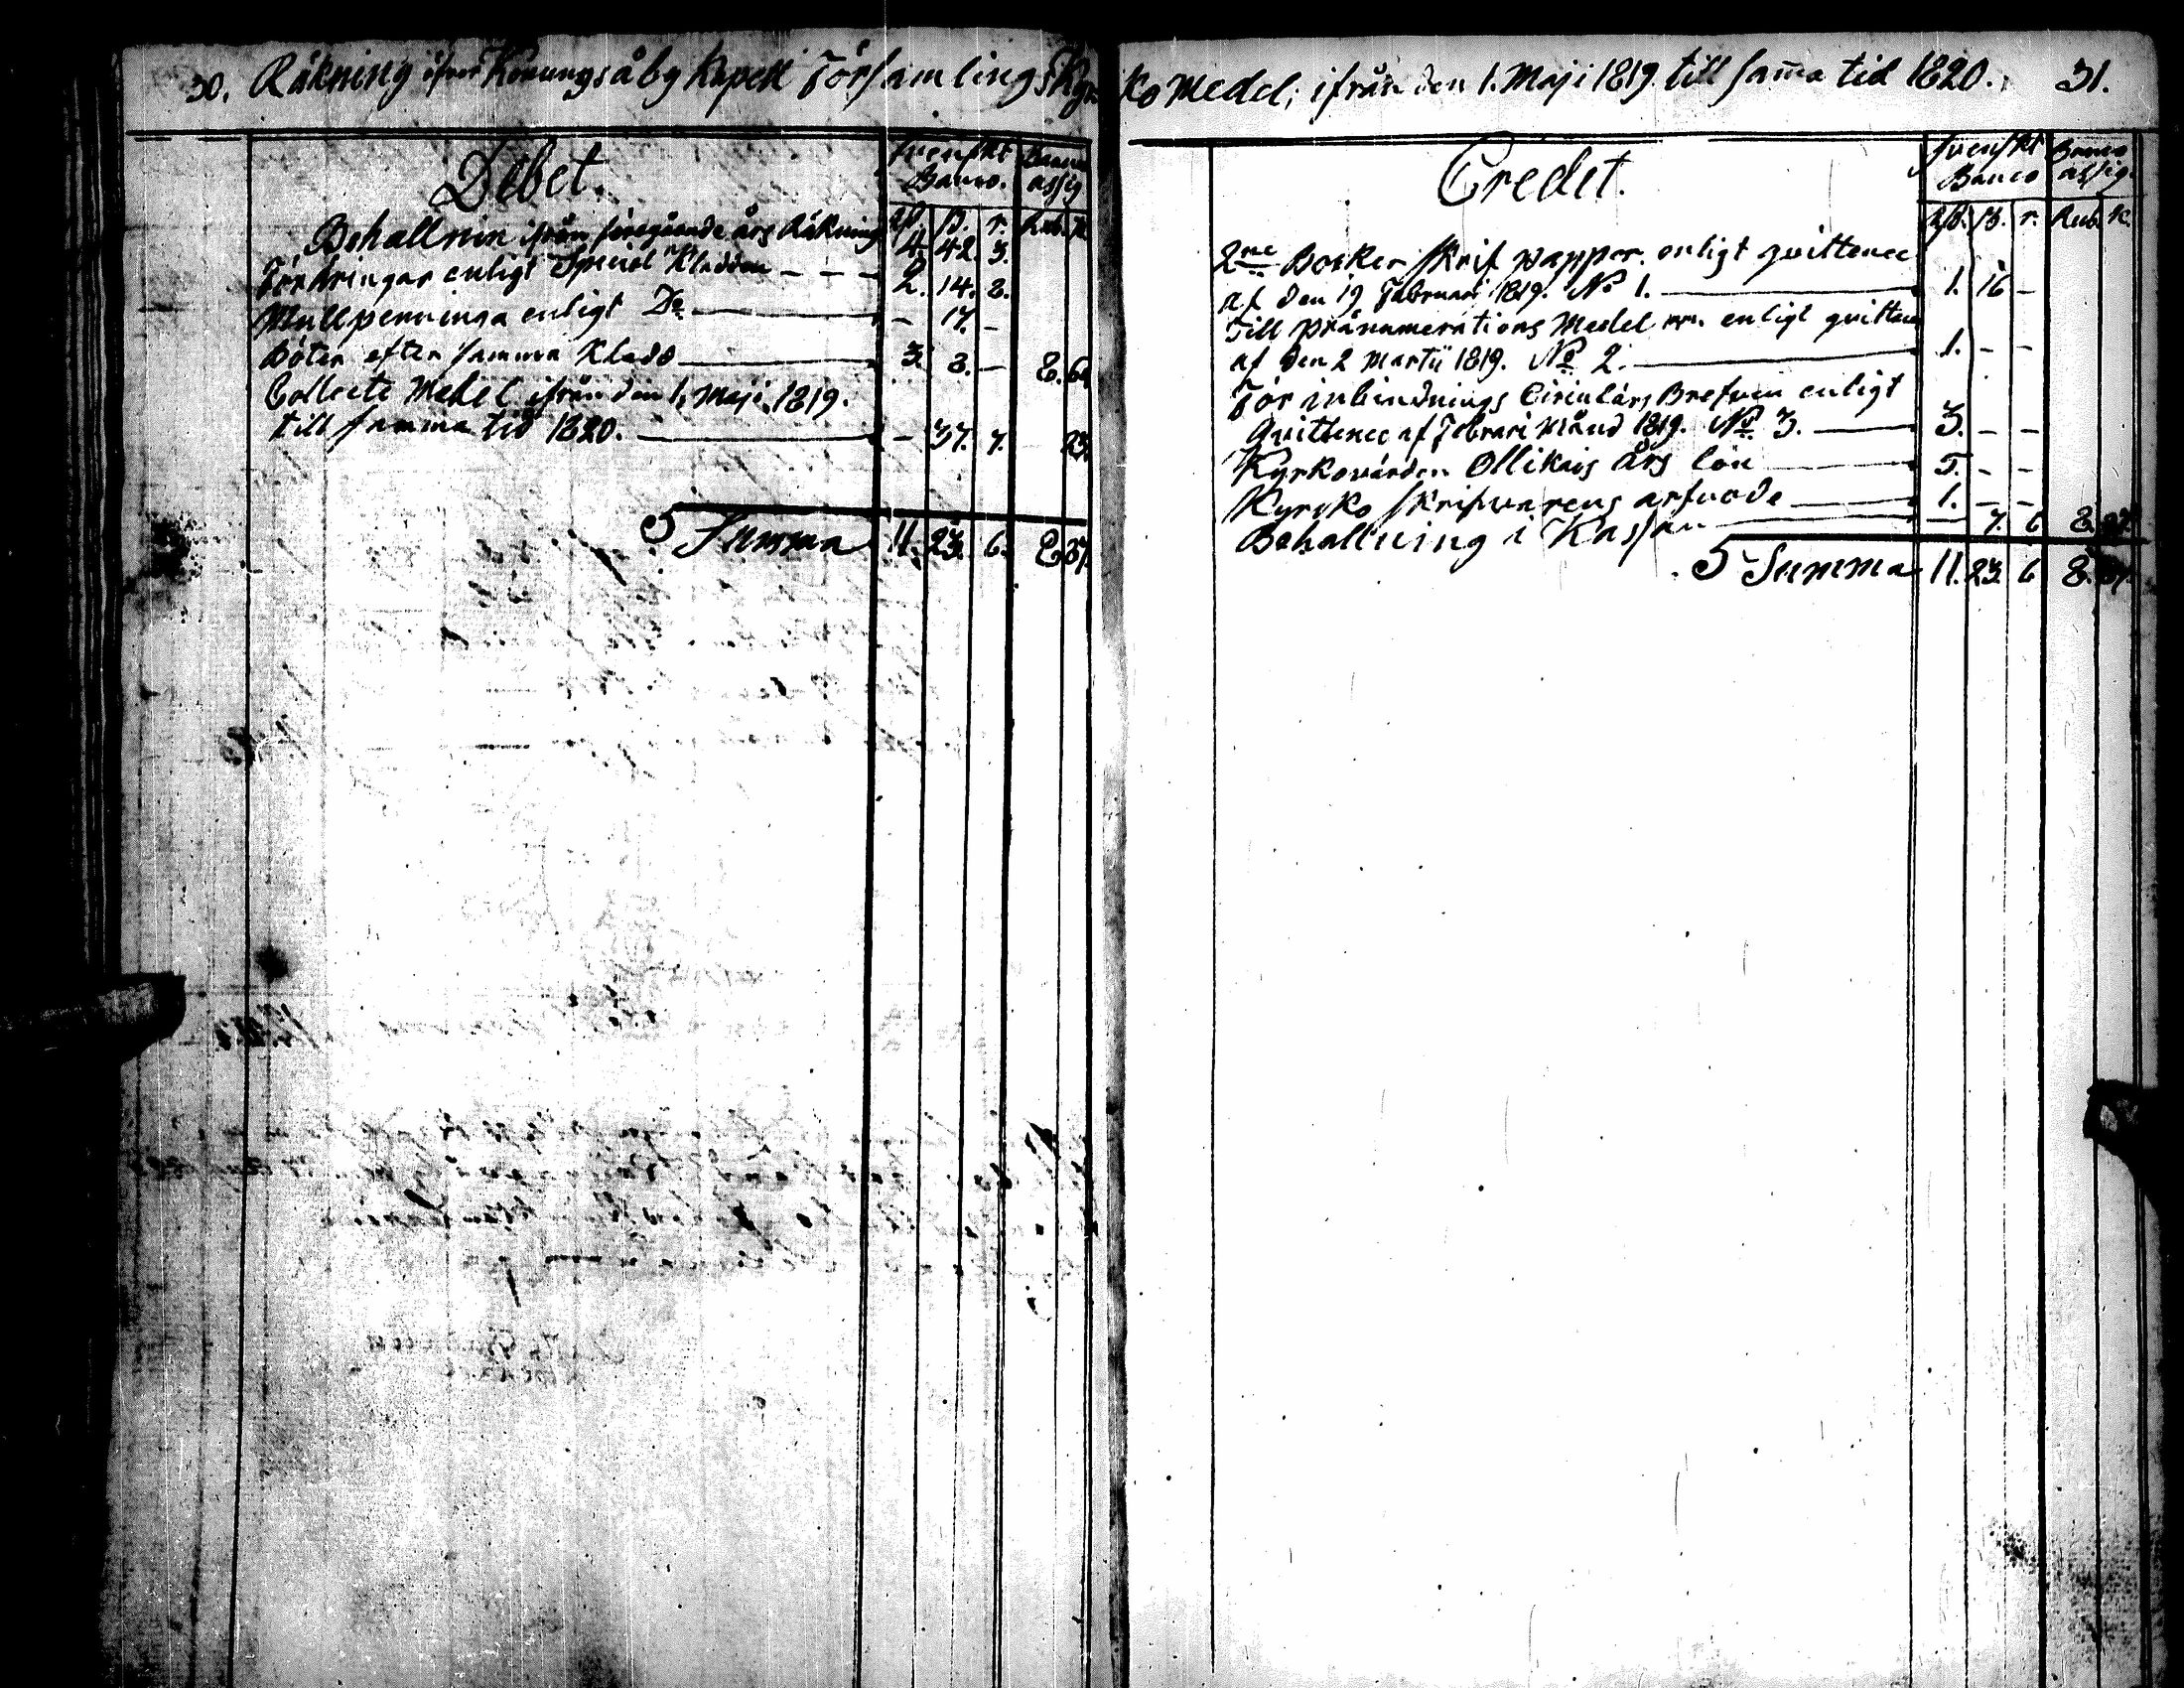 30. Räkning öfver Konungsåby Kapell Församlings Kyr
Debet.
Svenskt Banco.
Banco assig
rd. ß. r. Rub. K.
Behallnin ifrån föregående års Räkning 4. 42. 3.
Fordringar enligt Special Kladden - - - 2. 14. 8.
Mullpenninga enligt Do - 17. -
Böter efter samma Kladd 3. 8. - 8.
Collecte Medel ifrån den 1. Maji 1819.
till samma tid 1820. - 37. 7. 23.
Summa 11. 23. 6. 8 87.
ko Medel; ifrån den 1. Maji 1819. till sam̄a tid 1820. 31.
Credit.
Svenskt Banco
Banco assig.
rd. ß. r. Rub. K.
2ne Böcker skrif papper enligt qvittence
af den 19 Februari 1819. No 1. 1. 16 -
Till Pränumerations Medel enligt qvittence
af den 2 Martii 1819. No 2. 1. - -
För inbindnings Circulärs Brefven enligt
Qvittence af Febrari Månd 1819. No 3. 3. - -
Kyrkovärden Ollikais års lön 5. - -
Kyrcko skrifvarens arfvode 1. - -
Behallning i Kassan - 7. 6 8. 87
Summa 11. 23. 6 8. 87.